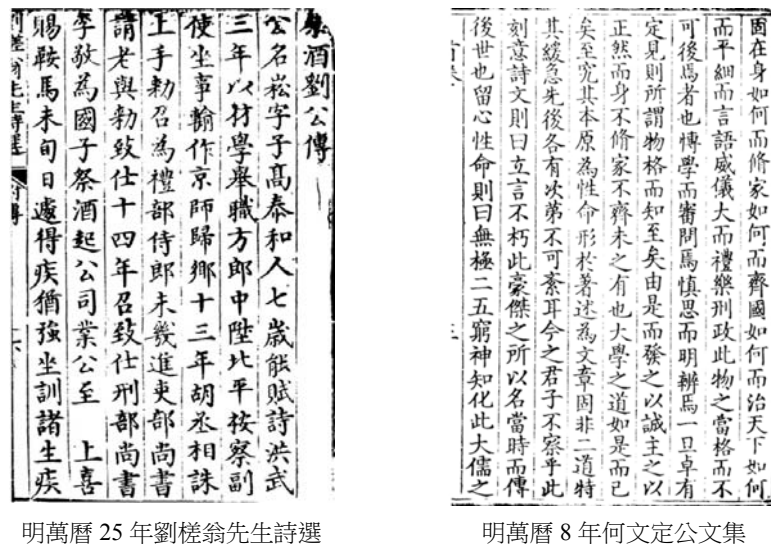 祭酒劉公傳
公名崧字子髙泰和人七歲能賦詩洪武
三年以材學舉職方郎中陞北平按察副
使坐事輸作京師歸鄉十三年胡丞相誅
上手勑召為禮部侍郎未幾進吏部尚書
請老與勑致仕十四年召致仕刑部尚書
李敬為國子祭酒起公司業公至　上喜
賜鞍馬未旬日遽得疾猶強坐訓諸生疾
槎翁先生詩選
明萬曆 25 年劉槎翁先生詩選
固在身如何而脩家如何而齊國如何而治天下如何
而平細而言語威儀大而禮樂刑政此物之當格而不
可後焉者也博學而審問焉慎思而明辨焉一旦卓有
定見則所謂物格而知至矣由是而發之以誠主之以
正然而身不脩家不齊未之有也大學之道如是而已
矣至究其本原為性命形於著述為文章固非二道特
其緩急先後各有次第不可紊耳今之君子不察乎此
刻意詩文則曰立言不朽此豪傑之所以名當時而傳
後世也留心性命則曰無極二五窮神知化此大儒之
明萬曆 8 年何文定公文集